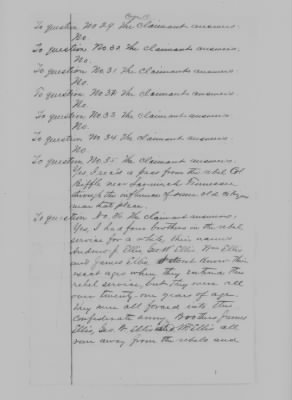 Page 11
To question No 29 the Claimant answers.
No.
To question No. 30 the Claimant answers.
No.
To question No. 31 the Claimant answers
No.
To question No. 32 the Claimant answers
No.
To question No. 33 the Claimant answers
No.
To question No. 34 the Claimant answers.
No.
To question No. 35 the Claimant answers.
Yes I received a pass from the rebel Col
Biffle near Savannah Tennessee
through the influence of some old citizen
near that place.
To question No 36 the Claimant answers.
Yes, I had four brothers in the rebel
service for a while, their names
Andrew J. Ellis, Geo W. Ellis Wm Ellis
and James Ellis, don't know their
exact ages when they entered the
rebel service, but they were all
over twenty-one years of age.
They were all forced into the
Confederate army. Brothers James
Ellis, Geo. W. Ellis Ellis all
ran away from the rebels and